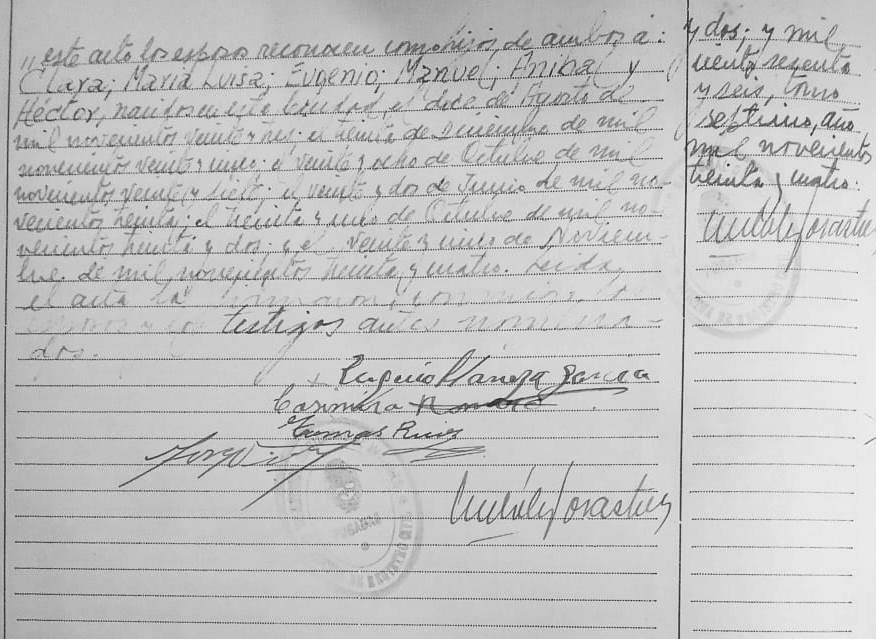 este acto los esposos reconocen como hijos de ambos a:
Clara; María Luisa; Eugenio; Manuel; Anibal y
Héctor, nacidos en esta ciudad, el doce de Agosto de
mil novecientos veinte y tres; el de Diciembre de mil
novecientos veinte y cinco; el veinte y ocho de Octubre de mil
novecientos veinte y siete; el veinte y dos de Junio de mil no-
vecientos treinta; el treinta y uno de Octubre de mil no-
vecientos treinta y dos; y el veinte y uno de Noviem-
bre de mil novecientos treinta y cuatro. Leida
el acta la firmaron conmigo los
esposos y los testigos antes nombra-
dos.
Eugenio García
Casimira Romano
Tomas Ruiz
y dos; y mil
ciento sesenta
y seis, tomo
septimo, año
mil novecientos
treinta y cuatro.